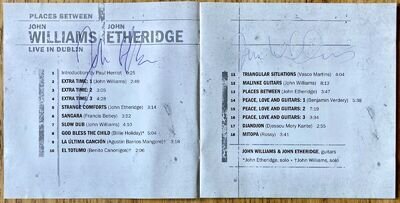 PLACES BETWEEN
JOHN JOHN
WILLIAMS ETHERIDGE
LIVE IN DUBLIN
1 Introduction by Paul Herriot 0:21
2 EXTRA TIME: 1 (John Williams) 2:49
3 EXTRA TIME: 2 3:05
4 EXTRA TIME: 3 4:28
5 STRANGE COMFORTS (John Etheridge) 3:14
6 SANGARA (Francis Bebey) 3:52
7 SLOW DUB (John Williams) 4:10
8 GOD BLESS THE CHILD (Billie Holiday)*
9 LA ÚLTIMA CANCIÓN (Agustín Barrios Mangoré)† 3:18
10 EL TOTUMO (Benito Canonigos)† 2:06
11 TRIANGULAR SITUATIONS (Vasco Martins) 4:04
12 MALINKE GUITARS (John Williams)
13 PLACES BETWEEN (John Etheridge) 3:47
14 PEACE, LOVE AND GUITARS: 1 (Benjamin Verdery)
15 PEACE, LOVE AND GUITARS: 2
16 PEACE, LOVE AND GUITARS: 3
17 DJANDJON (Djessou Mory Kante)
18 MITOPA (Rossy) 3:41
JOHN WILLIAMS & JOHN ETHERIDGE, guitars
*John Etheridge, solo • †John Williams, solo